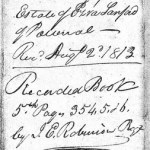 Estate of Ezra Sanford
of Palenal
Rec. Augt 2d 1813
Recorded Book
5th Page 354.5.&6.
by J E Robinson Regr